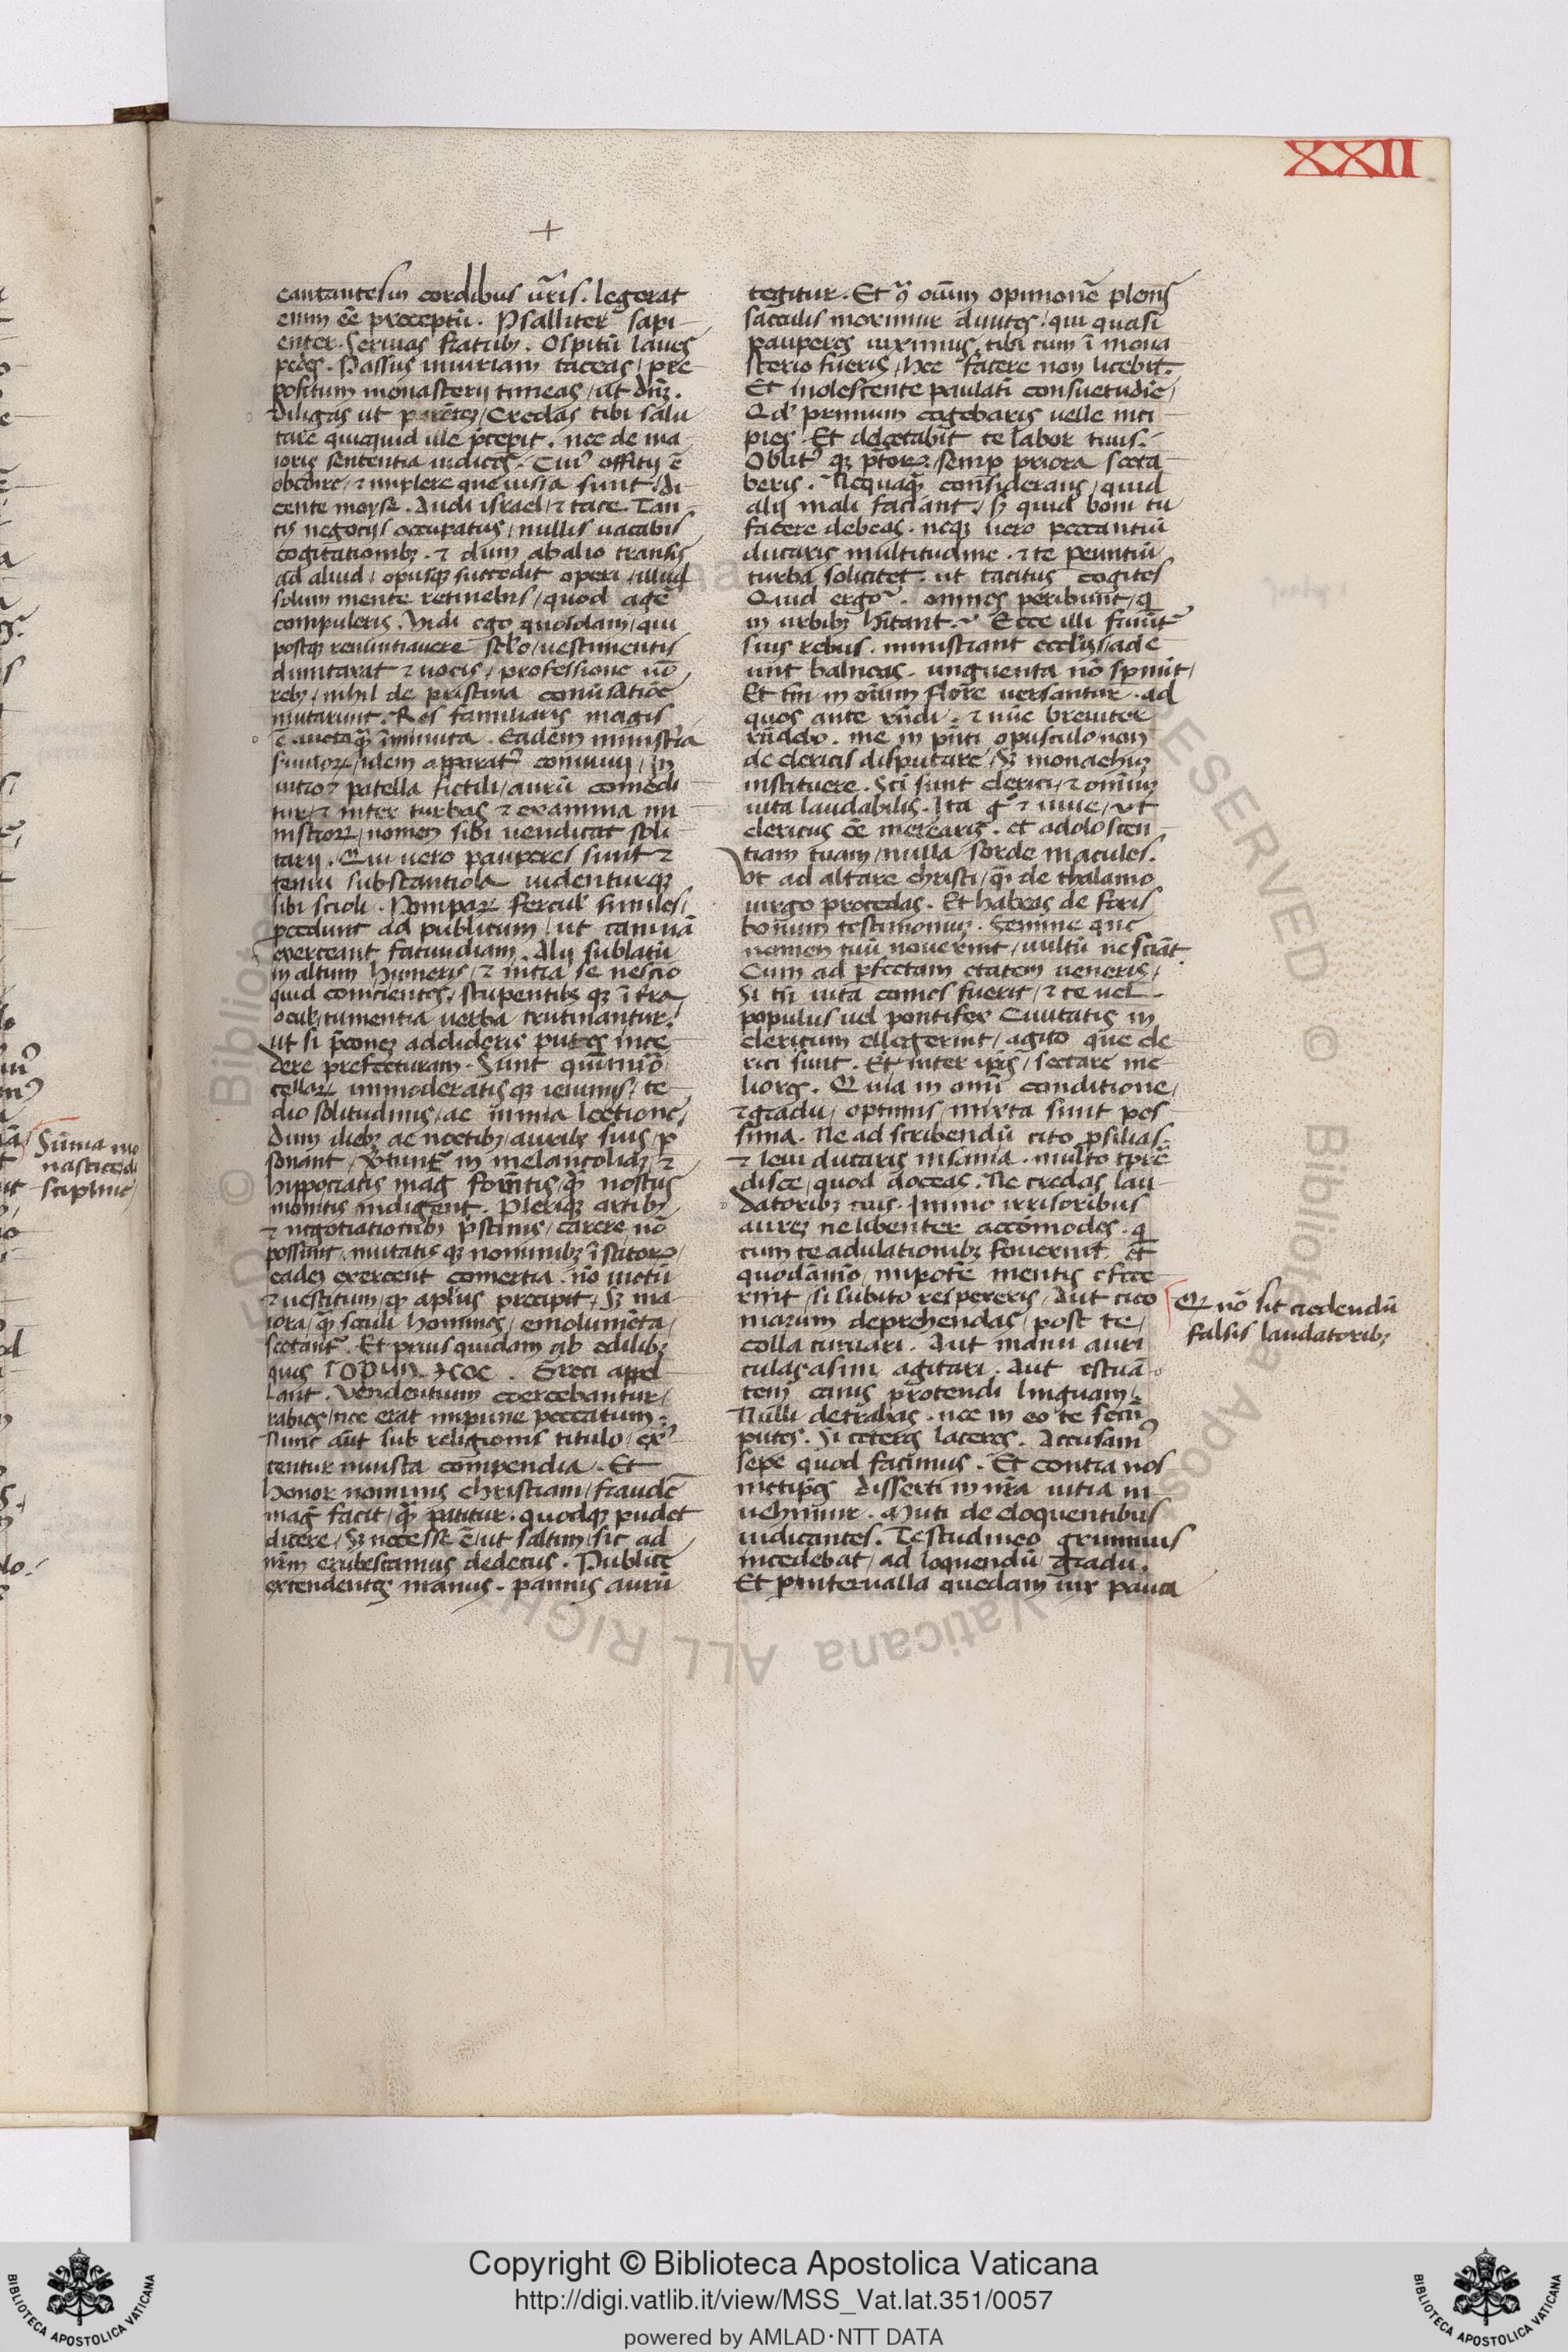 XXII
+
cantantes in cordibus ur̃is. legerat
enim ēe preceptū. Psalliter sapi
enter. Seruias fratrib⁊. Ospitū laues
pedes. Passus iniuriam taceas / pre
positum monasterij timeas / ut dn̄⁊.
diligas ut parēte⁊ / Credas tibi salu
tare quicquid ille p̄cepit. nec de ma
ioris sententia iudices. Cui⁹ offitij ē
obedire / ⁊ implere que iussa sunt / di
cente moyse. Audi israel / ⁊ tace. Tan
tis negocijs occupatus / nullis uacabis
cogitationib⁊. ⁊ dum ab alio transis
ad aliud / opusq⁊ succedit operi / illud
solum mente retinebis / quod agē
compuleris. Vidi ego quosdam / qui
postq̄ renuntiauere sc̄lo / uestimentis
dumtaxat ⁊ uocis / professione nō
reb⁊ / nihil de pristina conu̓satiōe
mutarunt. Res familiaris magis
ē aucta q̄⁊ īminuta. Eadem ministͥa
suulor⁊ / idem apparat⁹ conuiuij / In
uitro ⁊ patella fictili / aurū comedi
tur / ⁊ inter turbas ⁊ examina mi
nistror⁊ / nomen sibi uendicat soli
tarij. Qui uero pauperes sunt ⁊
tenui substantiola uidenturq⁊
sibi scioli. Pompar⁊ fercul̓ similes /
p̄cedunt ad publicum / ut caninā
exerceant facundiam. Alij sublatis
in altum humeris / ⁊ intra se nescio
quid cornicientes / stupentib⁊ q⁊ ī t̄ra
ocul̓ / tumentia uerba trutinantur.
ut si p̄cone⁊ addideris putes ince
dere prefecturam. Sunt qui nīo
cellar⁊ immoderatisq⁊ ieiunijs / te
dio solitudinis / ac nimia lectione /
dum dieb⁊ ac noctib⁊ / aurib⁊ suis / p
sonant / Vertunt̄ in melancolia⁊ / ⁊
hippocratis mag̓ fom̄tis / q̄⁊ nostris
monitis indigent. Pleriq⁊ artib⁊
⁊ negotiationib⁊ p̄stinis / carere nō
possunt. mutatisq⁊ nominib⁊ īstitor⁊ /
eade⁊ exercent comertia. nō uictū
⁊ uestitum / q̄ ap̄lus precipit / S⁊ ma
iora / q̄⁊ seculi homines / emolumēta /
sectant̄. Et prius quidam ab edilib⁊
quis ΤΟΡΥΝ ⁊ΟΟϹ. Greci appel
lant. Vendentium coercebantur /
rabies / nec erat impune peccatum.
Nunc aūt sub religionis titulo / ex̓
centur iniusta compendia. Et
honor nominis christiani / fraudē
mag̓ facit / q̄⁊ patitur. quodq⁊ pudet
dicere / S⁊ necesse ē / ut saltim sic ad
nr̄m erubescamus dedecus. Publice
extendentes manus. pannis aurū
tegitur. Et ɔ̓ oīum opinionē plenis
sacculis morimur diuites / qui quasi
pauperes uiximus. tibi cum ī mona
sterio fueris / hec facere non licebit.
Et inolescente paulatī consuetudīe /
Qd̓ primum cogebaris uelle inci
pies. Et delectabit te labor tuus.
Oblit⁹ q⁊ p̄tor⁊ / semp priora secta
beris. Nequaq̄⁊ considerans / quid
alij mali faciant / S⁊ quid boni tu
facere debeas. neq⁊ uero peccantiū
ducaris multitudine. ⁊ te peuntiū
turba solicitet. ut tacitus cogites
Quid ergo. omnes peribunt / q̄
in urbib⁊ hītant. Ecce illi fruūt̄
suis rebus. ministrant eccl̄ijs / ade
unt balneas. unguenta nō sp̄nūt /
Et tn̄ in oīum flore uersantur. ad
quos ante r̄ndi. ⁊ nūc breuiter
r̄ndebo. me in p̄nti opusculo non
de clericis disputare / S⁊ monachu⁊
instituere. Sc̄i sunt clerici / ⁊ omīu⁊
uita laudabilis. Ita g̓ ⁊ uiue / ut
clericus ēe merearis. et adolescen
tiam tuam / nulla sorde macules.
Vt ad altare christi / q̄i de thalamo
uirgo procedas. Et habeas de foris
bonum testimoniu⁊. Femine que
nomen tuū nouerint / uultū nesciāt.
Cum ad pfectam etatem ueneris /
Si tn̄ uita comes fuerit / ⁊ te uel
populus uel pontifex Ciuitatis in
clericum ellegerint / agito que cle
rici sunt. Et inter ip̄s / sectare me
liores. Quia in omī conditione /
⁊ gradu / optimis / mixta sunt pes
sima. Ne ad scribendū cito psilias.
⁊ leui ducaris insania. multo tp̄re
disce / quod doceas. Ne credas lau
datorib⁊ tuis. Immo irrisoribus
aure⁊ ne libenter accōmodes. q̄
cum te adulationib⁊ fouerint et
quodāmō / impotē mentis effece
rint / si subito respexeris / Aut cico
niarum deprehendas / post te /
colla curuari. Aut manu auri
culas asini agitari. Aut estuā
tem canis protendi linguam.
Nulli detrahas. nec in eo te scm̄
putes. Si ceteros laceres. Accusam⁹
sepe quod facimus. Et contra nos
metip̄os disserti in nr̄a uitia in
uehimur. Muti de eloquentibus
iudicantes. Testudineo grunnius
incedebat / ad loquendū gradu.
Et p interualla quedam uix pauca
Q⁊ nō sit credendū
falsis laudatorib⁊
Sūma mo
nastice di
scipline /
Copyright © Biblioteca Apostolica Vaticana
http://digi.vatlib.it/view/MSS_Vat.lat.351/0057
powered by AMLAD·NTT DATA
BIBLIOTECA APOSTOLICA VATICANA
BIBLIOTECA APOSTOLICA VATICANA